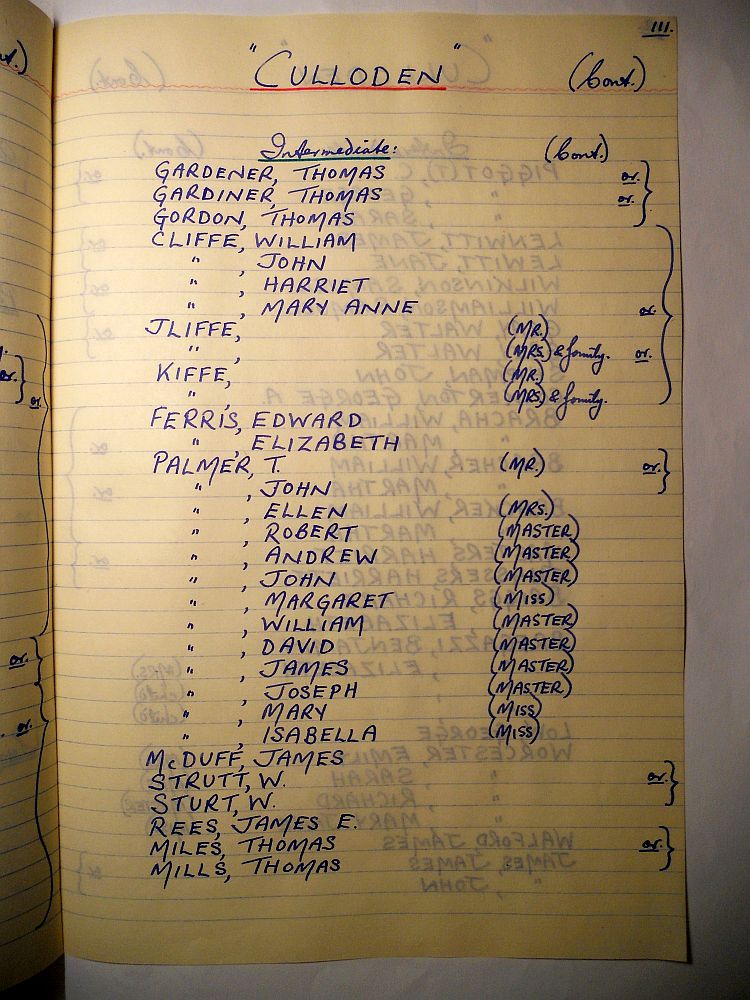 111.
"CULLODEN" (Cont.)
Intermediate: (Cont.)
GARDENER, THOMAS or.
GARDINER, THOMAS or.
GORDON, THOMAS
CLIFFE, WILLIAM
" , JOHN
" , HARRIET
" , MARY ANNE or.
JLIFFE, (MR.)
" , (MRS.) & family. or.
KIFFE, (MR.)
" , (MRS.) & family.
FERRIS, EDWARD
" , ELIZABETH
PALMER, T. (MR.) or.
" , JOHN
" , ELLEN (MRS.)
" , ROBERT (MASTER)
" , ANDREW (MASTER)
" , JOHN (MASTER)
" , MARGARET (MISS)
" , WILLIAM (MASTER)
" , DAVID (MASTER)
" , JAMES (MASTER)
" , JOSEPH (MASTER)
" , MARY (MISS)
" , ISABELLA (MISS)
McDUFF, JAMES
STRUTT, W. or.
STURT, W.
REES, JAMES E.
MILES, THOMAS or.
MILLS, THOMAS